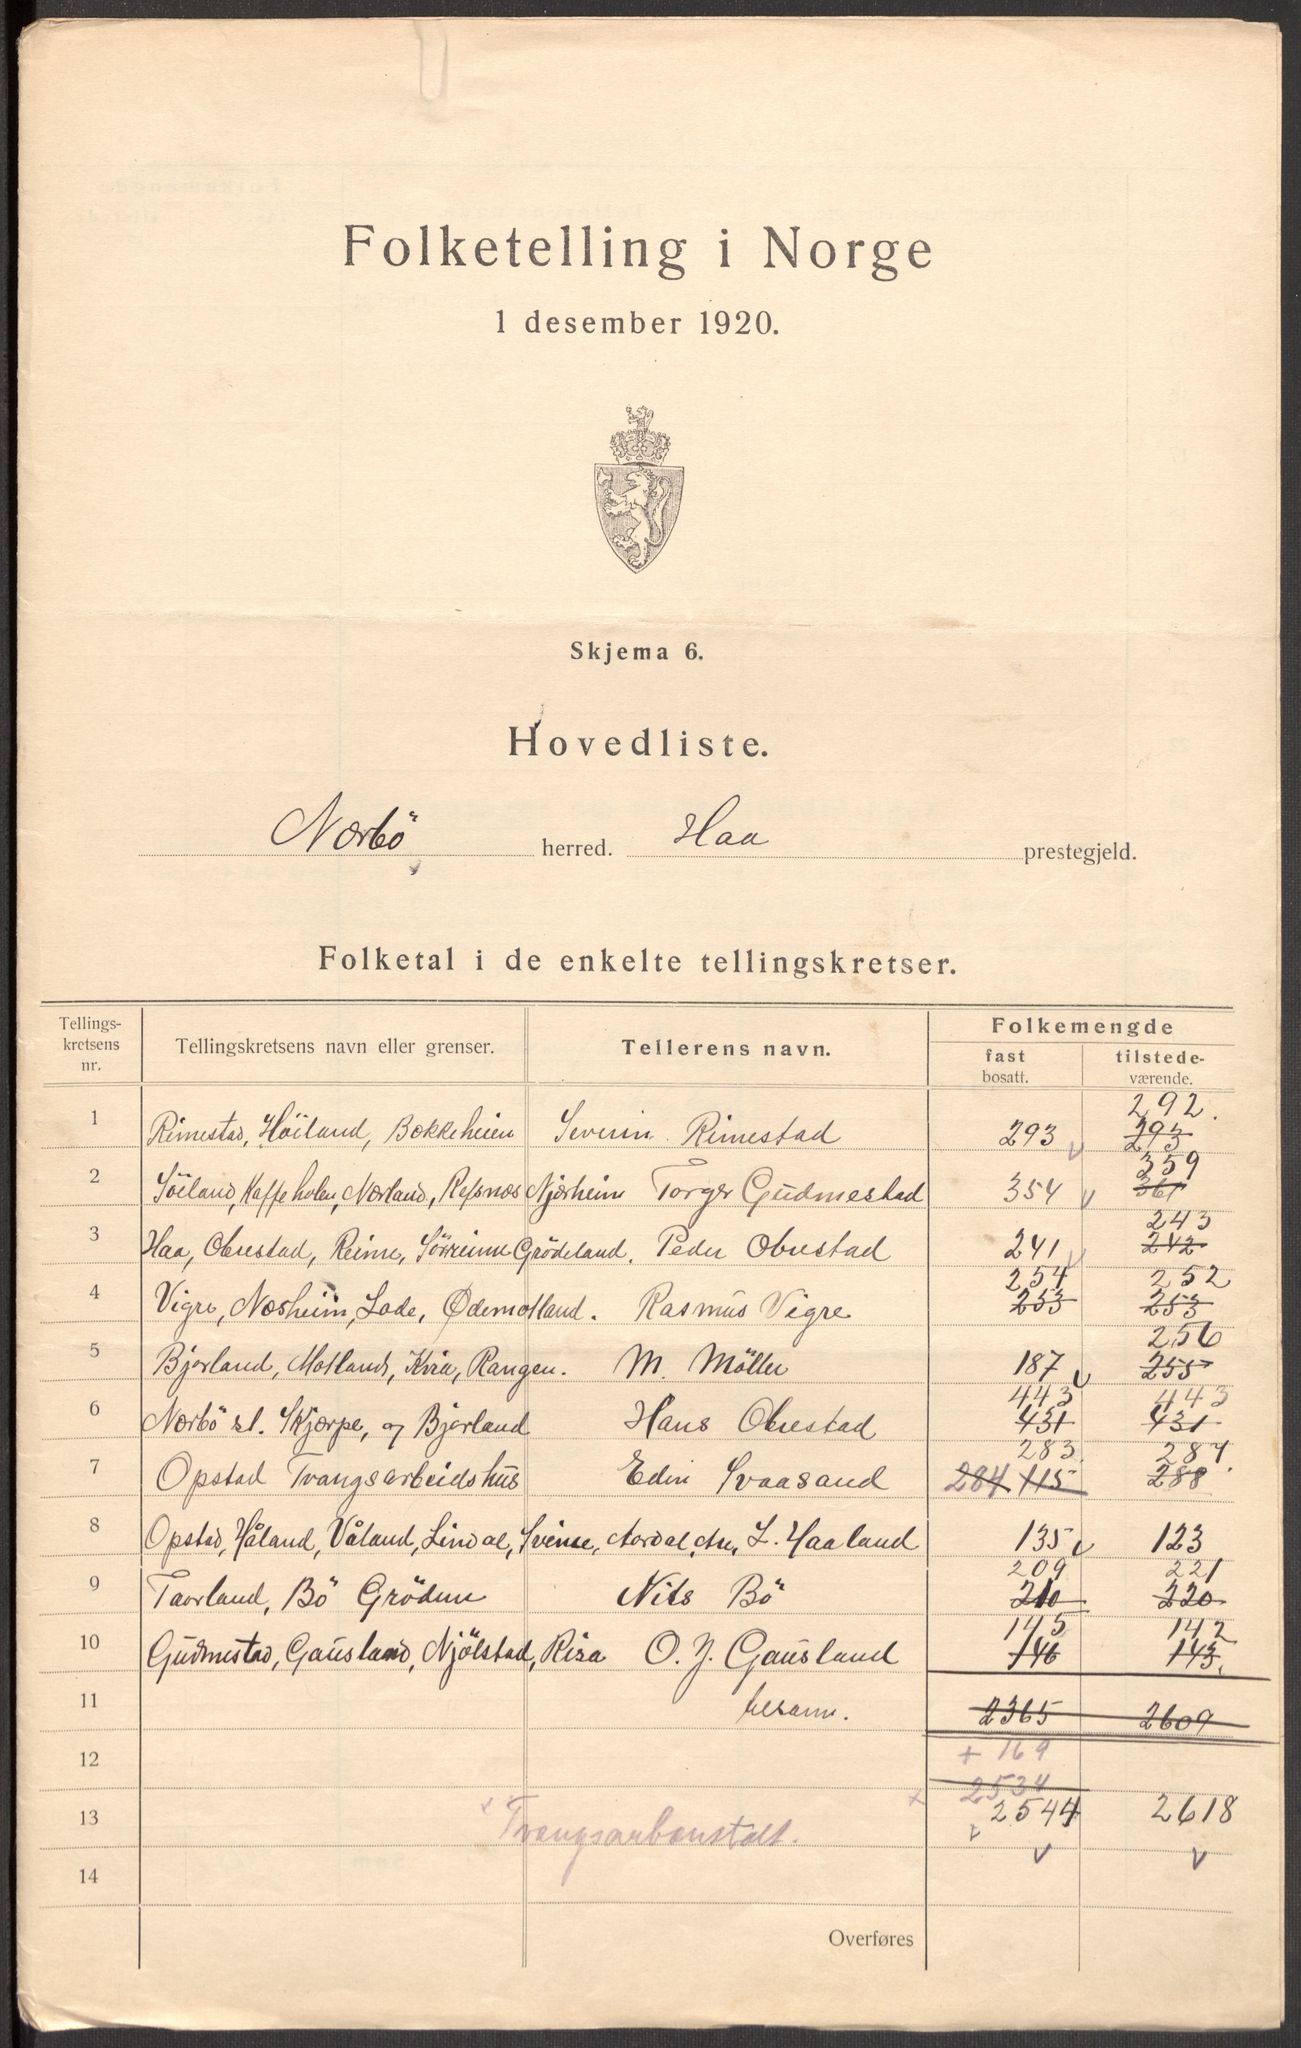 Folketelling i Norge
1 desember 1920.
Skjema 6.
Hovedliste.
Nærbö herred. Haa prestegjeld.
Folketal i de enkelte tellingskretser.
Tellings-
kretsens
nr.
Tellingskretsens navn eller grenser.
Tellerens navn.
Folkemengde
fast
bosatt.
tilstede-
værende.
292.
1 Rimestad, Höiland, Bokkeheien Severin Rimestad 293 293
359
2 Söiland, Kaffeholen, Nærland, Refsnes Njærheim Torger Gudmestad 354 361
243
3 Haa, Obrestad, Reime, Sörreime Grödeland. Peder Obrestad 241 242
254 252
4 Vigre, Næsheim, Lode, Ødemotland. Rasmus Vigre 253 253
256
5 Bjorland, Motland, Kvia, Rangen. M. Möller 187 255
443 443
6 Nærbö st. Skjærpe, og Bjorland Hans Obrestad 431 431
283. 287.
7 Opstad Tvangsarbeidshus Edin Svaasand 284 115 288
8 Opstad, Håland, Våland, Lindal, Svinse, Aardal, L. Haaland 135 123
209 221
9 Taarland, Bö Gröden Nils Bö 210 220
145 142
10 Gudmestad, Gausland, Njölstad, Risa O. J. Gausland 146 143.
11 tilsam. 2365 2609
12 + 169
2534
13 × Tvangsarbanstalt. × 2544 2618
14
Overføres